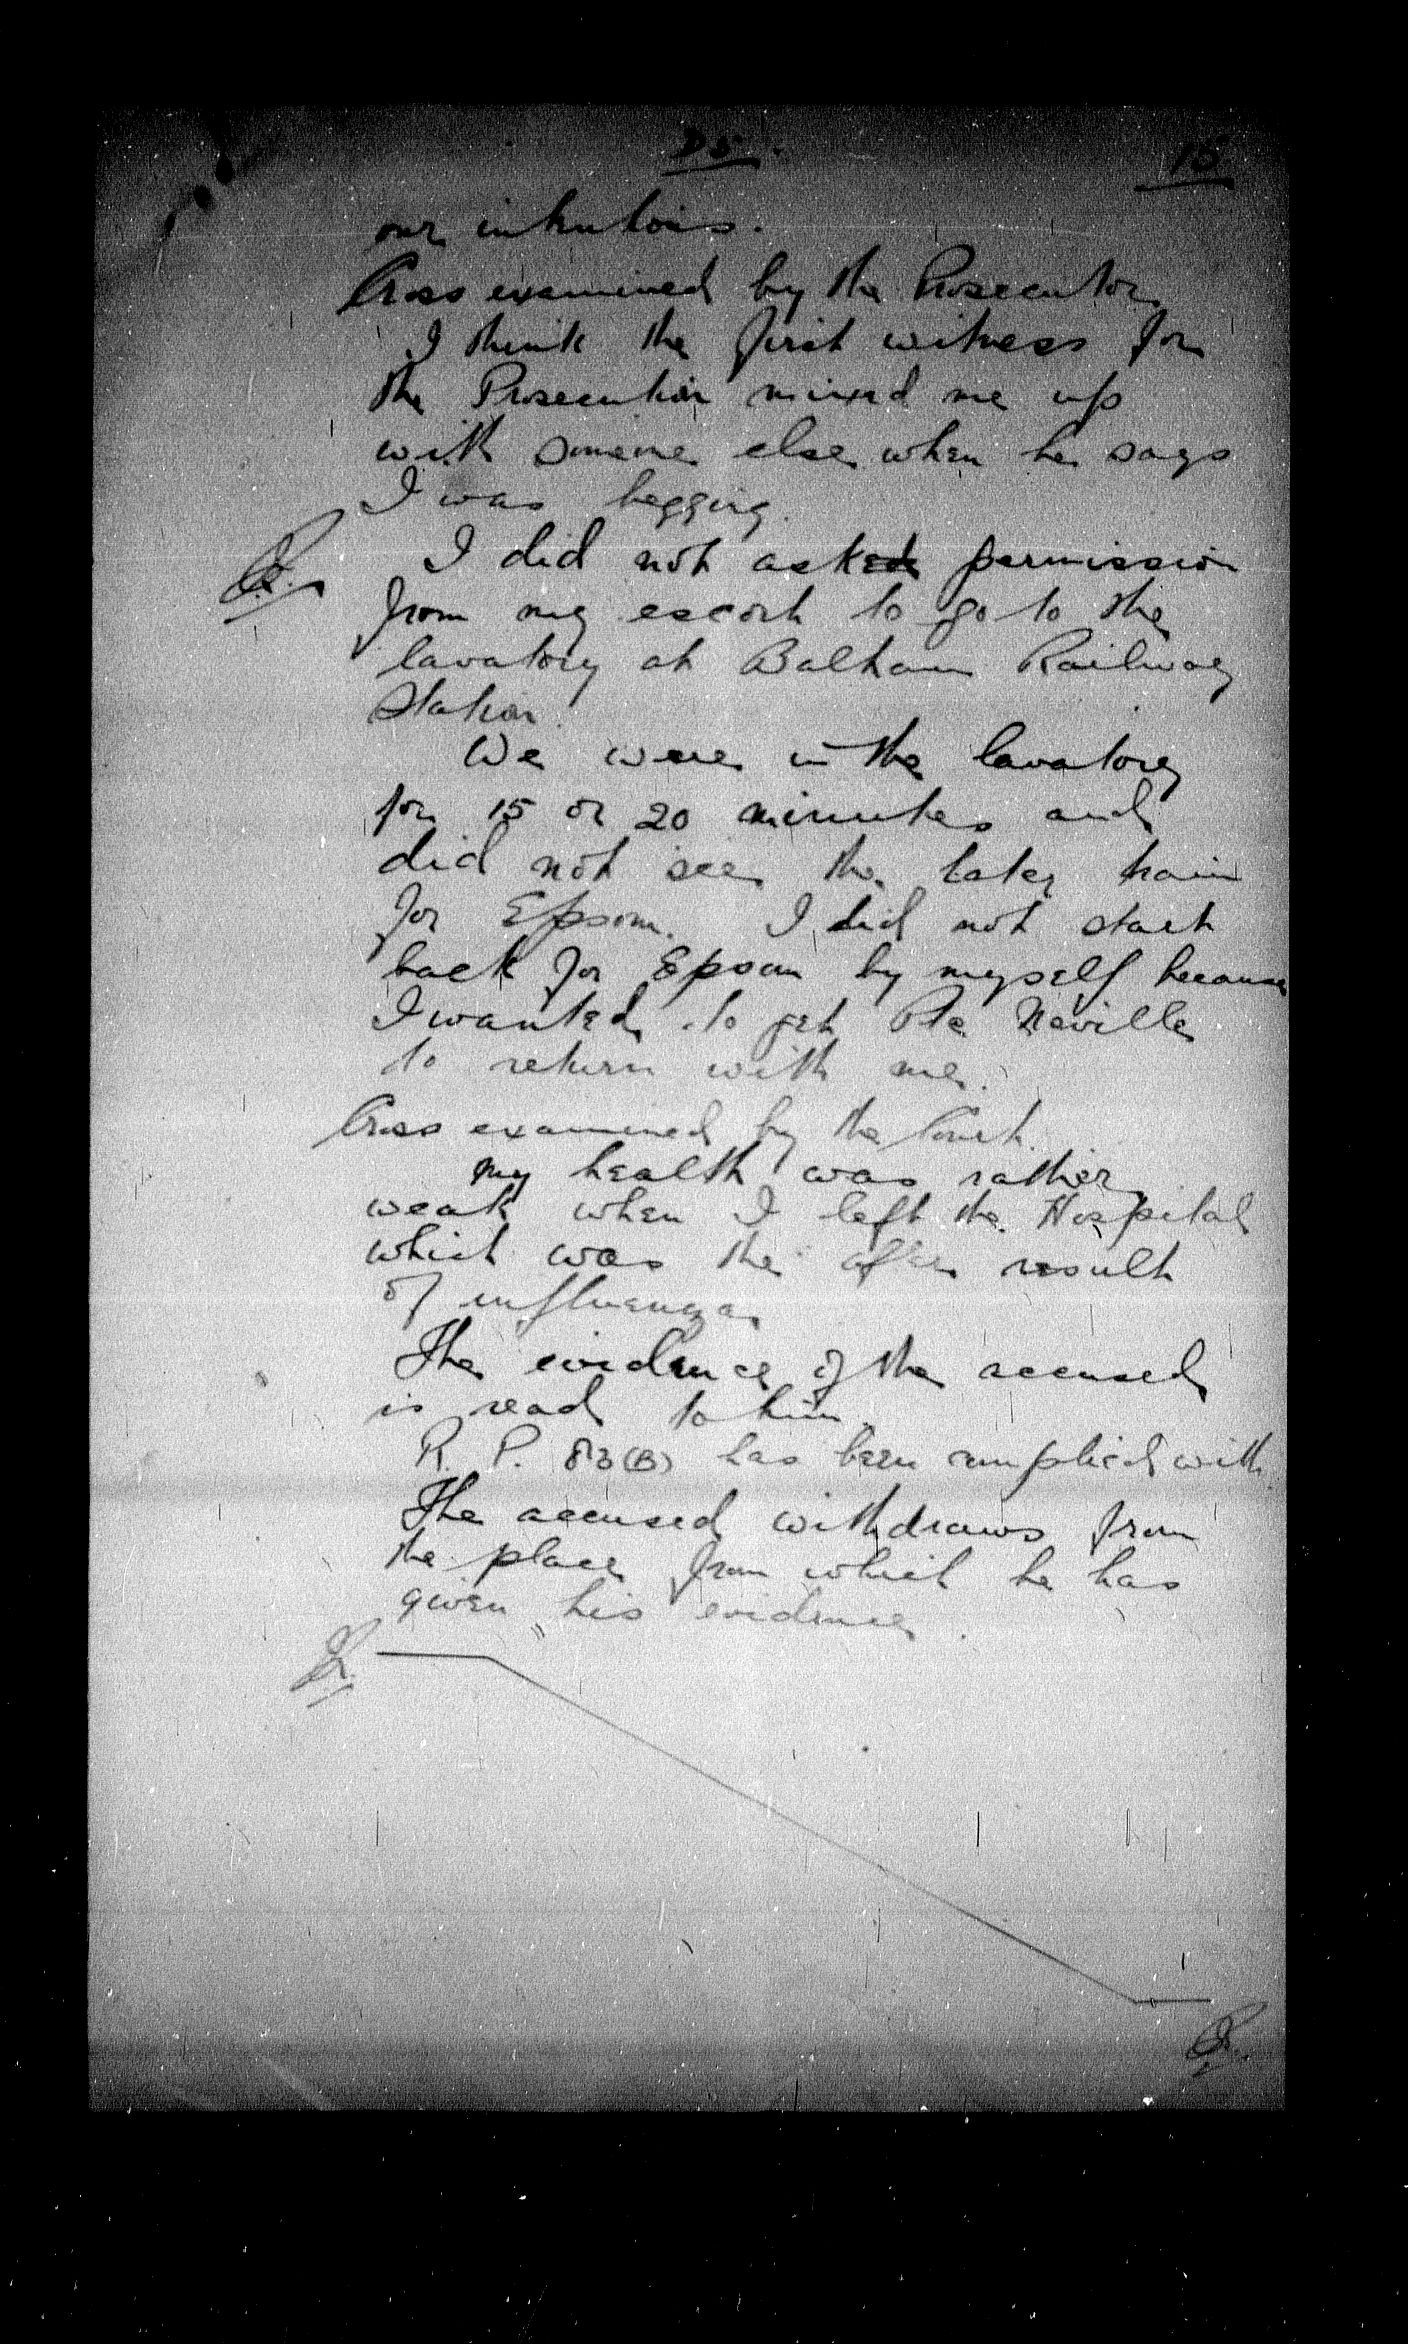 D5.
15
our intentions.
Cross examined by the Prosecutor
I think the first witness for
the Prosecution mixed me up
with someone else when he says
I was begging.
I did not asked permission
from my escort to go to the
lavatory at Balham Railway
Station.
We were in the lavatory
for 15 or 20 minutes and
did not see the later train
for Epsom. I did not start
back for Epsom by myself because
I wanted to get Pte Neville
to return with me.
Cross examined by the Court.
My health was rather
weak when I left the Hospital
which was the after result
of influenza
The evidence of the accused
is read to him.
R. P. 83(B) has been complied with
The accused withdraws from
the place from which he has
given his evidence.